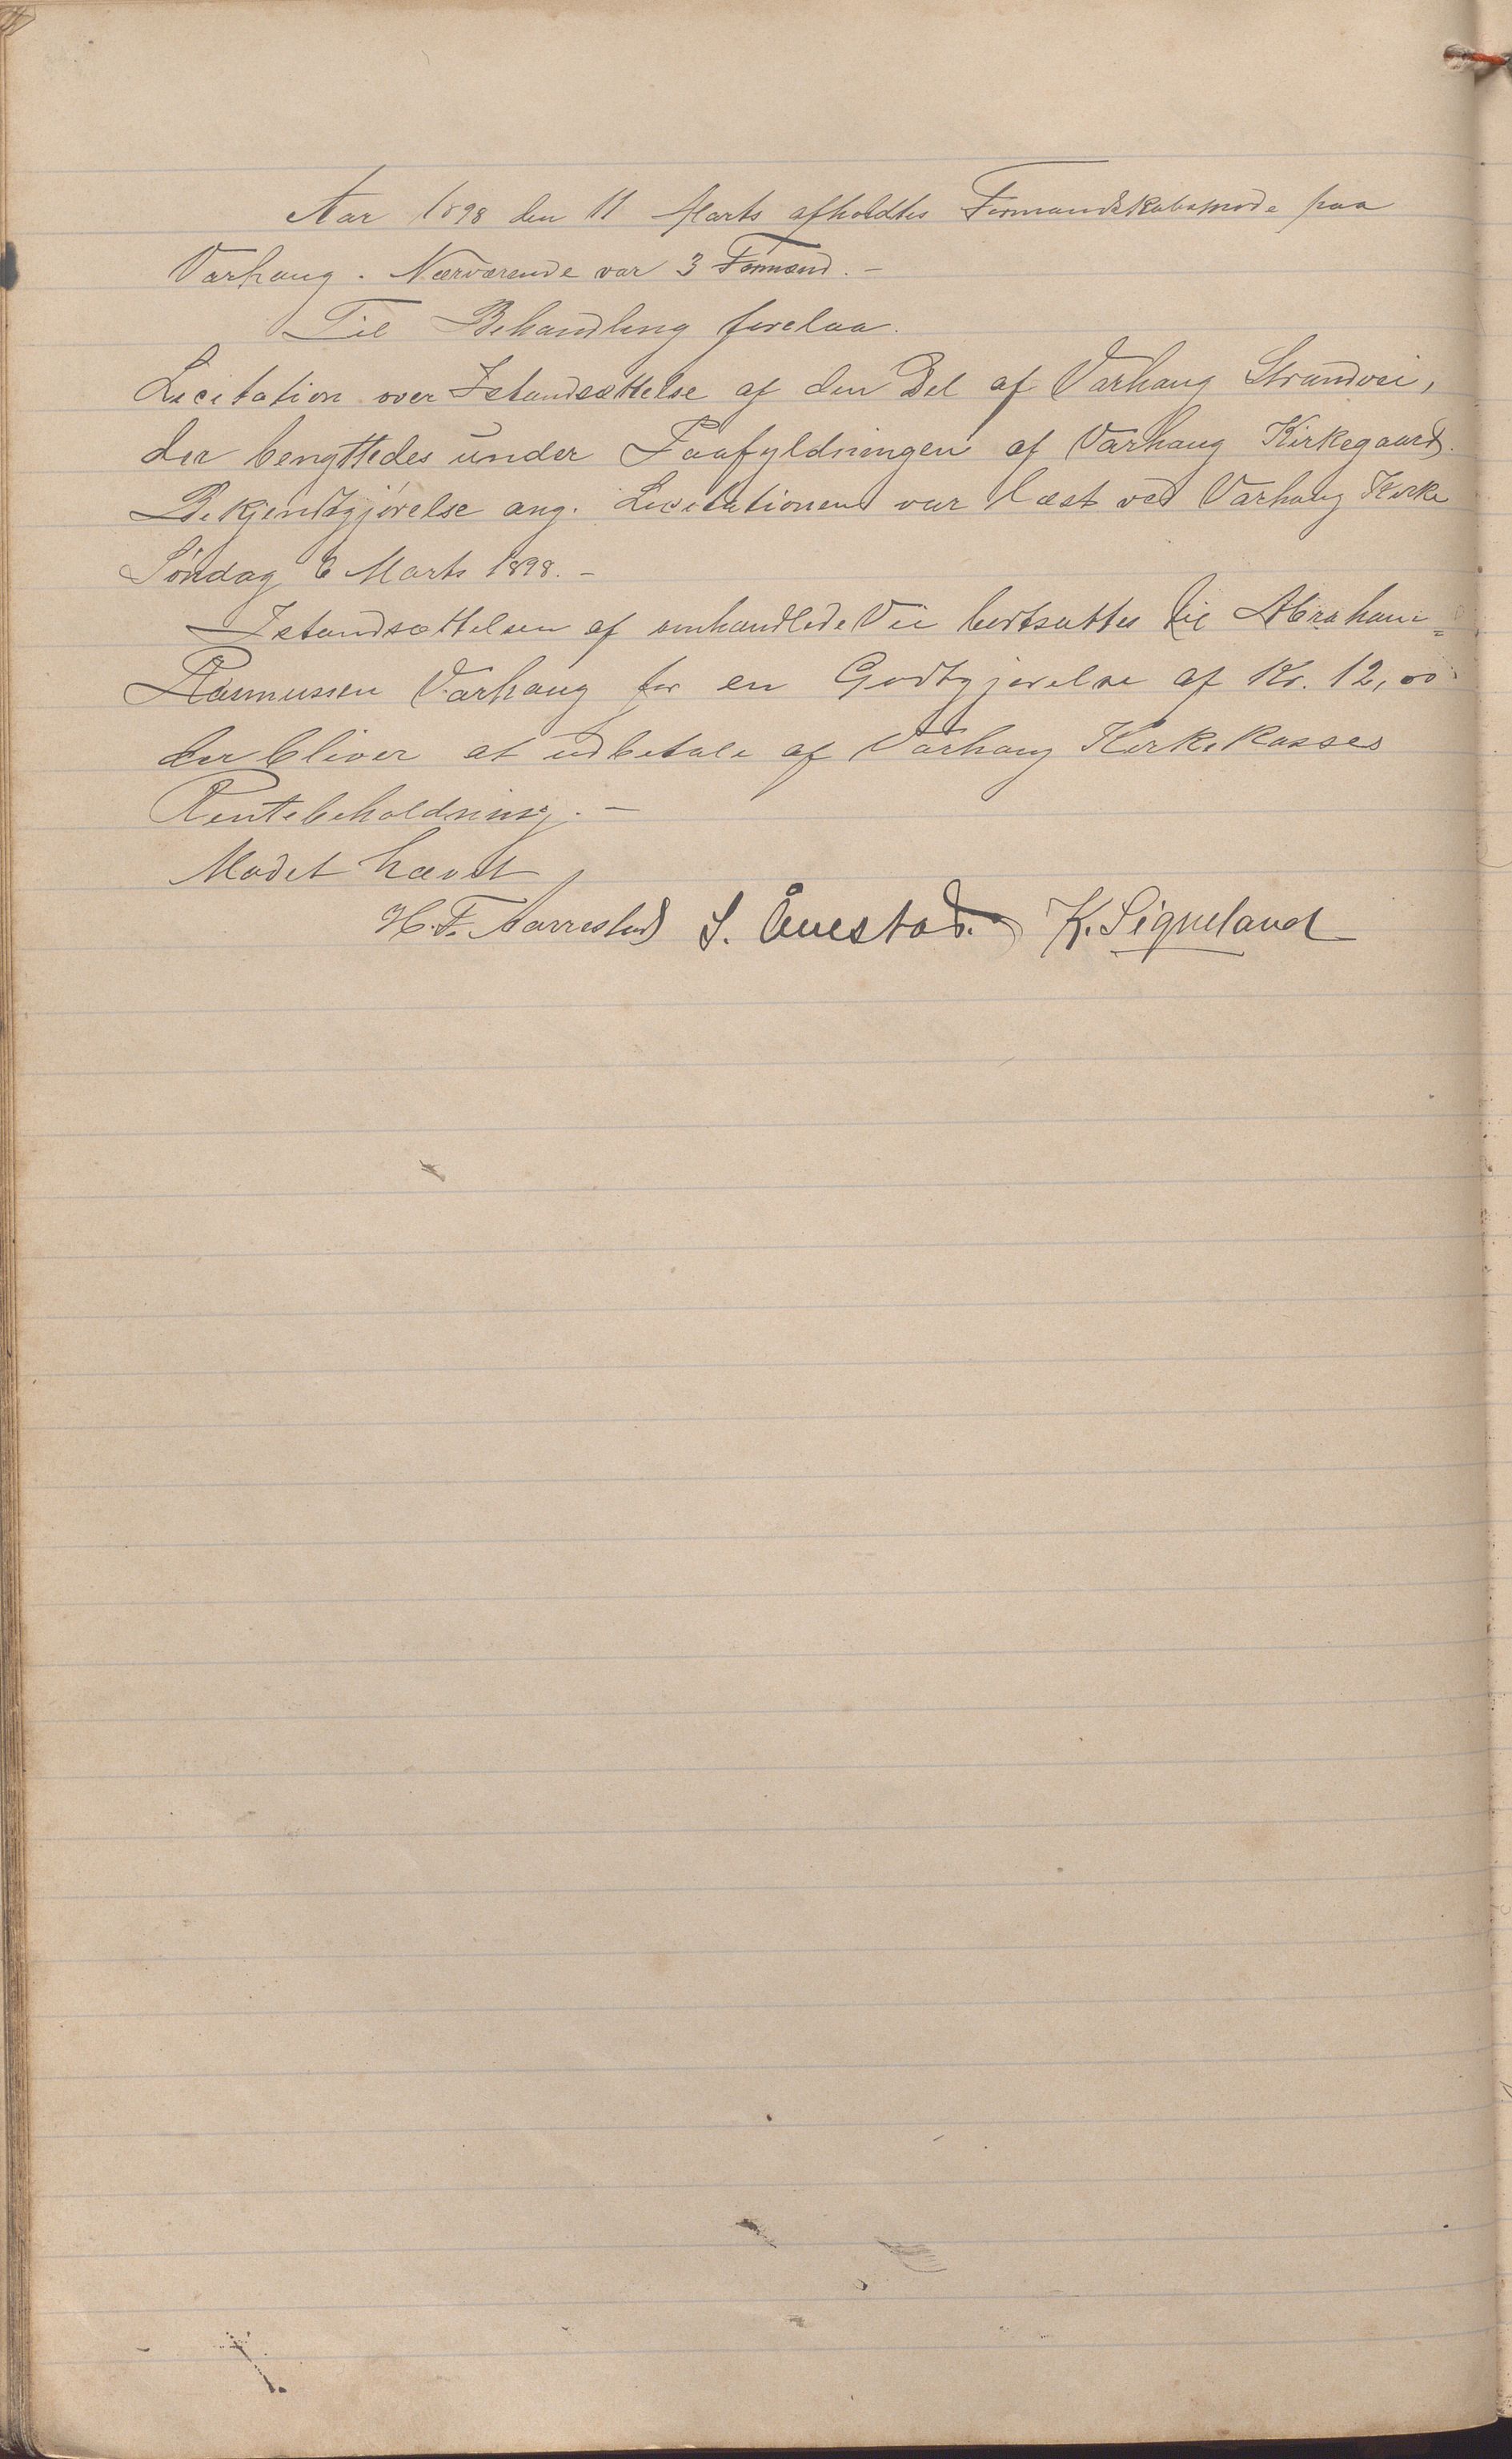 Aar 1898 den 11 Marts afholdtes Formandskabsmøde paa
Varhaug. Nærværende var 3 Formænd. –
Til Behandling forelaa.
Licitation over Istandsættelse af den Del af Varhaug Strandvei,
der benyttedes under Paafyldningen af Varhaug Kirkegaard.
Bekjendtgjørelse ang. Licitationen var læst ved Varhaug Kirke
Søndag 6 Marts 1898. –
Istandsættelsen af omhandlede Vei bortsattes til Abraham
Rasmussen Varhaug for en Godtgjørelse af Kr. 12,00
der bliver at udbetale af Varhaug Kirkekasses
Rentebeholdning. –
Mødet hævet
H. F. Aarrestad S. Ånestad. K. Sigueland